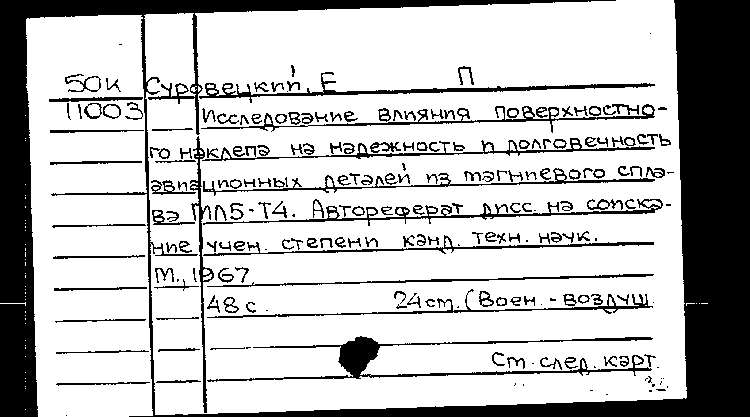 50к Суровецкий, Е П
11003 Исследование влияния поверхностно-
го наклепа на надежность и долговечность
авиационных деталей из магниевого спла-
ва МЛ5-Т4. Автореферат дисс. на соиска-
ние учен. степени канд. техн. наук.
М., 1967
48 с. 24 см. (Воен.-воздуш
См. след. карт.